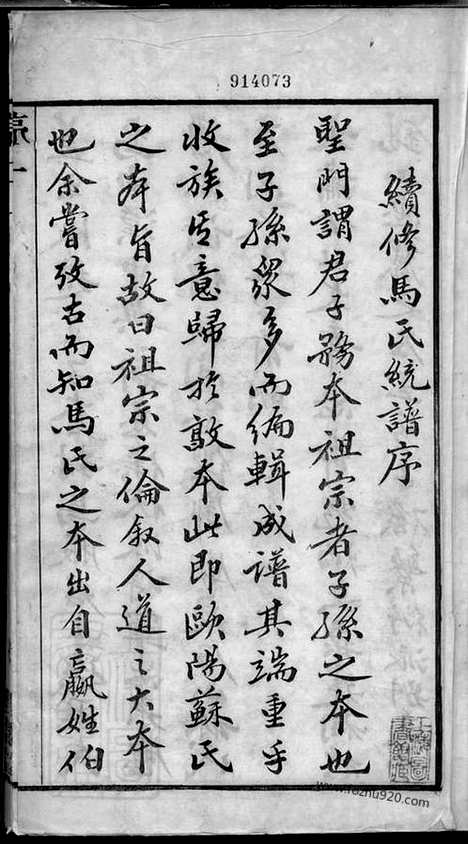 914073
續修馬氏統譜序
聖門謂君子務本祖宗者子孫之本也
至子孫眾多而編輯成譜其端重乎
收族其意歸於敦本此即歐陽蘇氏
之本旨故曰祖宗之倫敘人道之大本
也余嘗攷古而知馬氏之本出自嬴姓伯
www.fozhu920.com